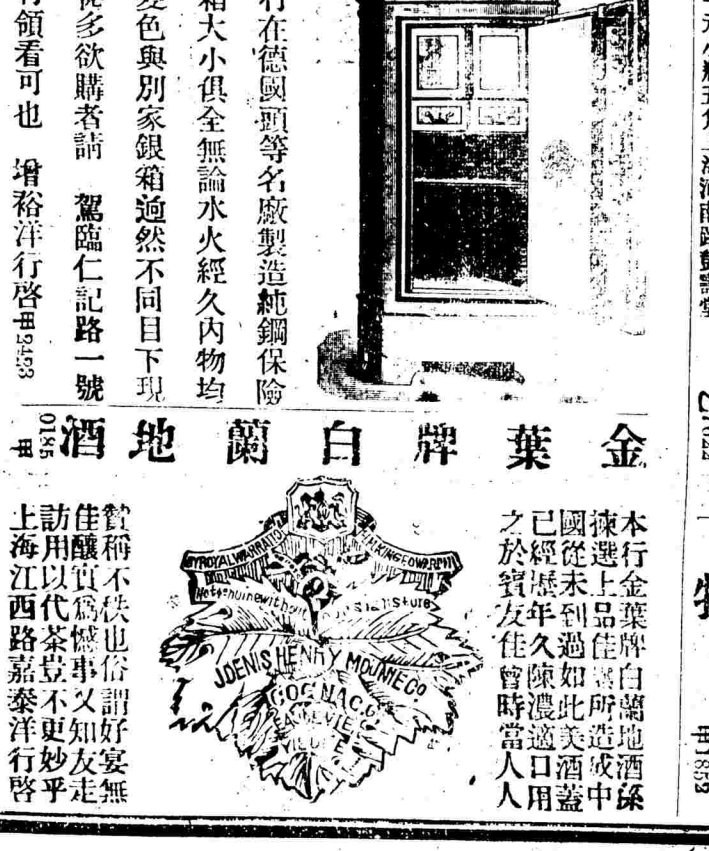 行在德國頭等名廠製造純鋼保險
箱大小俱全無論水火經久內物均
變色與別家銀箱迥然不同目下現
從多欲購者請 駕臨仁記路一號
領看可也 增裕洋行啓 甲2493
金葉牌白蘭地酒
甲 0185
本行金葉牌白蘭地酒係
揀選上品佳所造成中
國從未到過如此美酒蓋
已經歷年久陳濃適口用
之於賓友佳會時當人人
BY ROYAL WARRANT
H.M. KING EDWARD VII
Not genuine without signature
J. DENIS HENRY MOUNIE Co
COGNAC
贊稱不秩也俗謂好宴無
佳釀實爲憾事又知友走
訪用以代茶豈不更妙乎
上海江西路嘉泰洋行啓